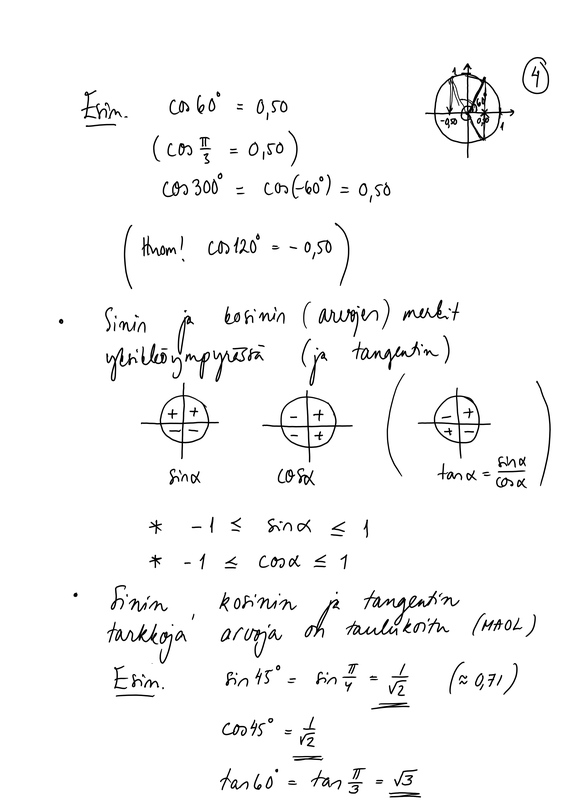 4
Esim. cos 60° = 0,50
(cos π/3 = 0,50)
cos 300° = cos(-60°) = 0,50
(Huom! cos 120° = -0,50)
1
60°
-0,50 0,50
1
• Sinin ja kosinin (arvojen) merkit
yksikköympyrässä (ja tangentin)
+ + - + - +
- - - + + -
sin α cos α tan α = sin α / cos α
* -1 ≤ sin α ≤ 1
* -1 ≤ cos α ≤ 1
• Sinin, kosinin ja tangentin
tarkkoja arvoja on taulukoitu (MAOL)
Esim. sin 45° = sin π/4 = 1/√2 (≈ 0,71)
cos 45° = 1/√2
tan 60° = tan π/3 = √3